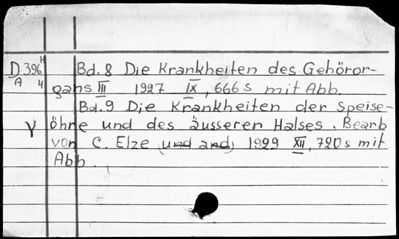 D 396 H Bd. 8 Die Krankheiten des Gehöror-
A 4 gans III 1927 IX, 666 s mit Abb.
Bd. 9 Die Krankheiten der Speise-
γ öhre und des äusseren Halses. Bearb
von C. Elze (und and) 1929 XII, 720 s mit
Abb.